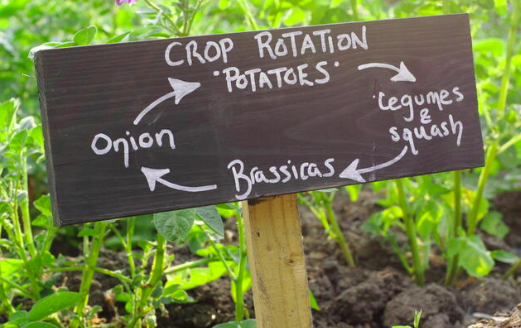 CROP ROTATION
"POTATOES"
Legumes
&
squash
Brassicas
Onion